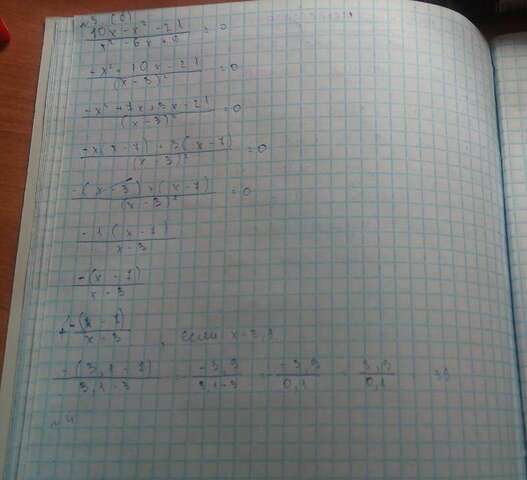 №3 (6)
10x-x²-21 / x²-6x+9 = 0
-x²+10x-21 / (x-3)² = 0
-x²+7x+3x-21 / (x-3)² = 0
-x(x-7)+3(x-7) / (x-3)² = 0
-(x-3)×(x-7) / (x-3)² = 0
-1(x-7) / x-3
-(x-7) / x-3
-(x-7) / x-3, если x=3,1
-(3,1-7) / 3,1-3 -3,9 / 3,1-3 -3,9 / 0,1 3,9 / 0,1 39
№4